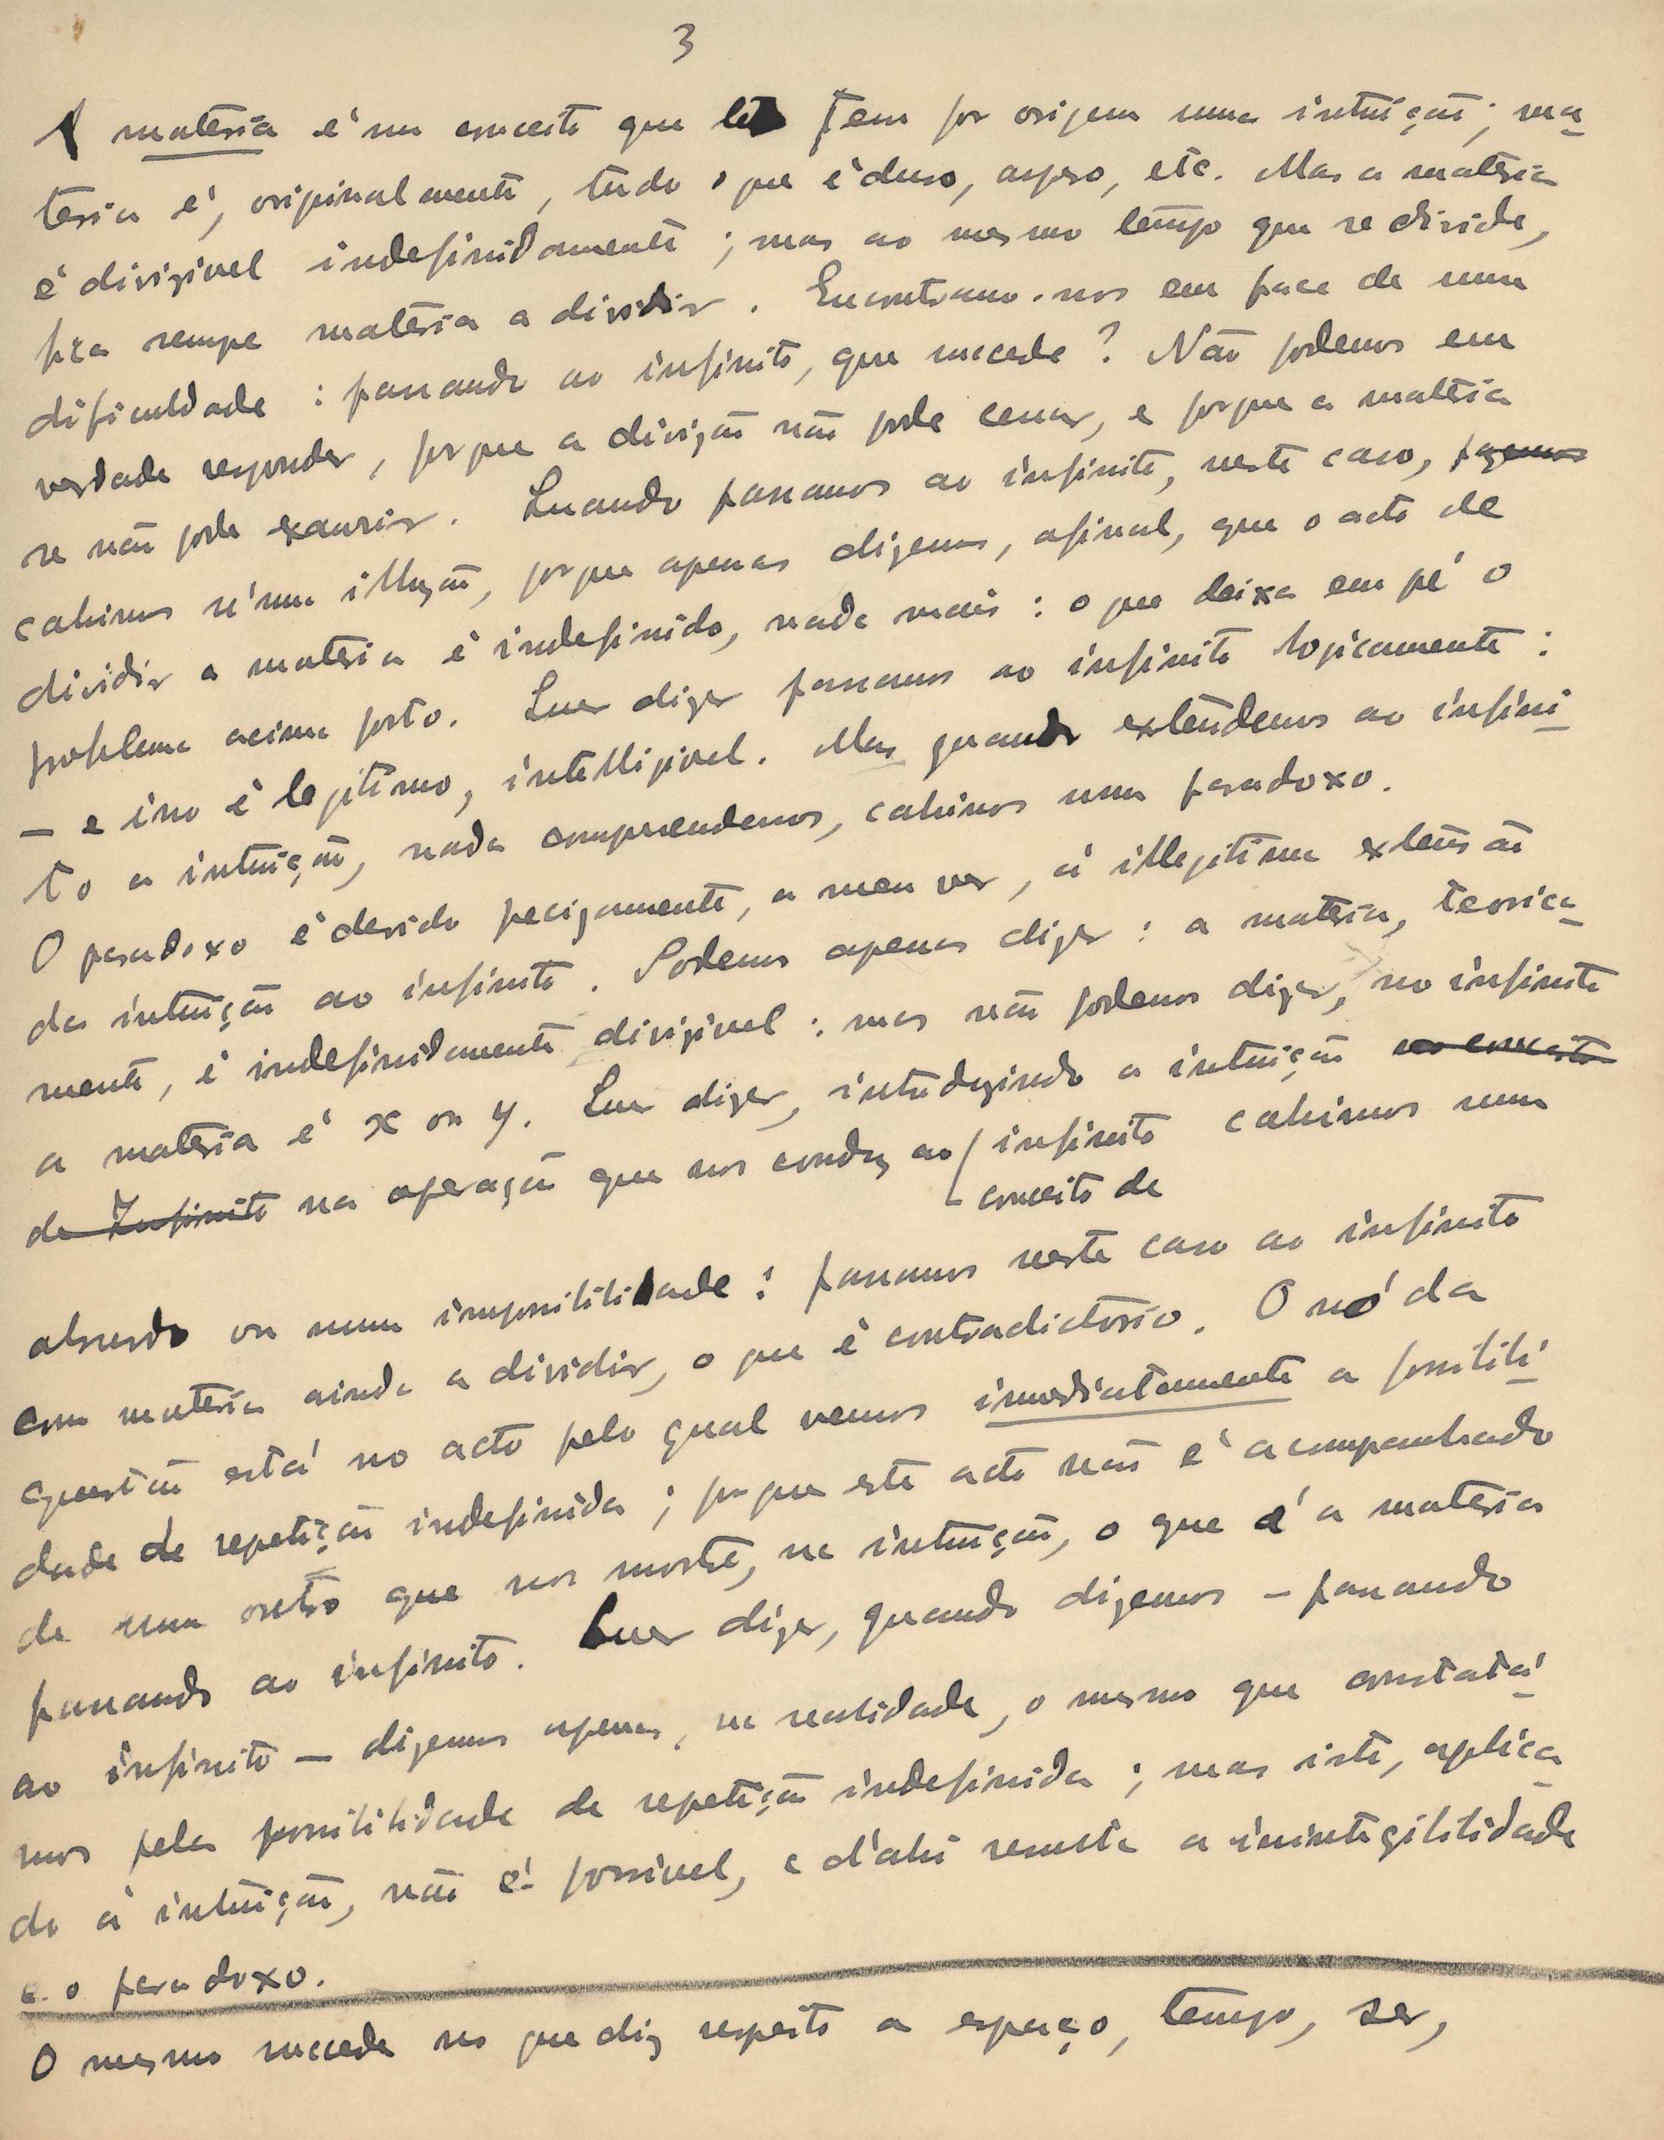 3
A materia é um conceito que tem por origem uma intuição; ma-
teria é, originalmente, tudo o que é duro, aspero, etc. Mas a materia
é divizivel indefinidamente; mas ao mesmo tempo que se divide,
fica sempre materia a dividir. Encontramo-nos em face de uma
dificuldade: passando ao infinito, que succede? Não podemos em
verdade responder, porque a divizão não pode cessar, e porque a materia
se não pode exaurir. Quando passamos ao infinito, neste caso, fazemos
cahimos n'uma illuzão, porque apenas dizemos, afinal, que o acto de
dividir a materia é indefinido, nada mais: o que deixa em pé o
problema acima posto. Quer dizer passamos ao infinito logicamente:
— e isso é legitimo, intelligivel. Mas quando extendemos ao infini-
to a intuição, nada comprehendemos, cahimos num paradoxo.
O paradoxo é devido precizamente, a meu ver, á illegitima extensão
da intuição ao infinito. Podemos apenas dizer: a materia, teorica-
mente, é indefinidamente divizivel: mas não podemos dizer, no infinito
a materia é x ou y. Quer dizer, introduzindo a intuição no conceito
de Infinito na operação que nos conduz ao infinito cahimos num
conceito de
absurdo ou numa impossibilidade: passamos neste caso ao infinito
com materia ainda a dividir, o que é contradictorio. O nó da
questão está no acto pelo qual vemos immediatamente a possibili-
dade de repetição indefinida; porque este acto não é acompanhado
de um outro que nos mostre, na intuição, o que é a materia
passando ao infinito. Quer dizer, quando dizemos — passando
ao infinito — dizemos apenas, na realidade, o mesmo que constatá-
mos pela possibilidade de repetição indefinida; mas isto, aplica-
do á intuição, não é possivel, e d'ahi resulta a inintegibilidade
e o paradoxo.
O mesmo succede no que diz respeito a espaço, tempo, ser,